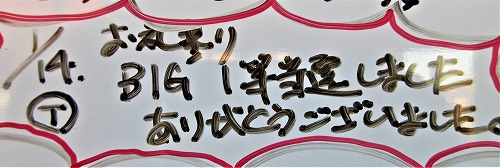 1/14. お礼まいり
BIG 1等当選しました
Ⓣ ありがとうございました。